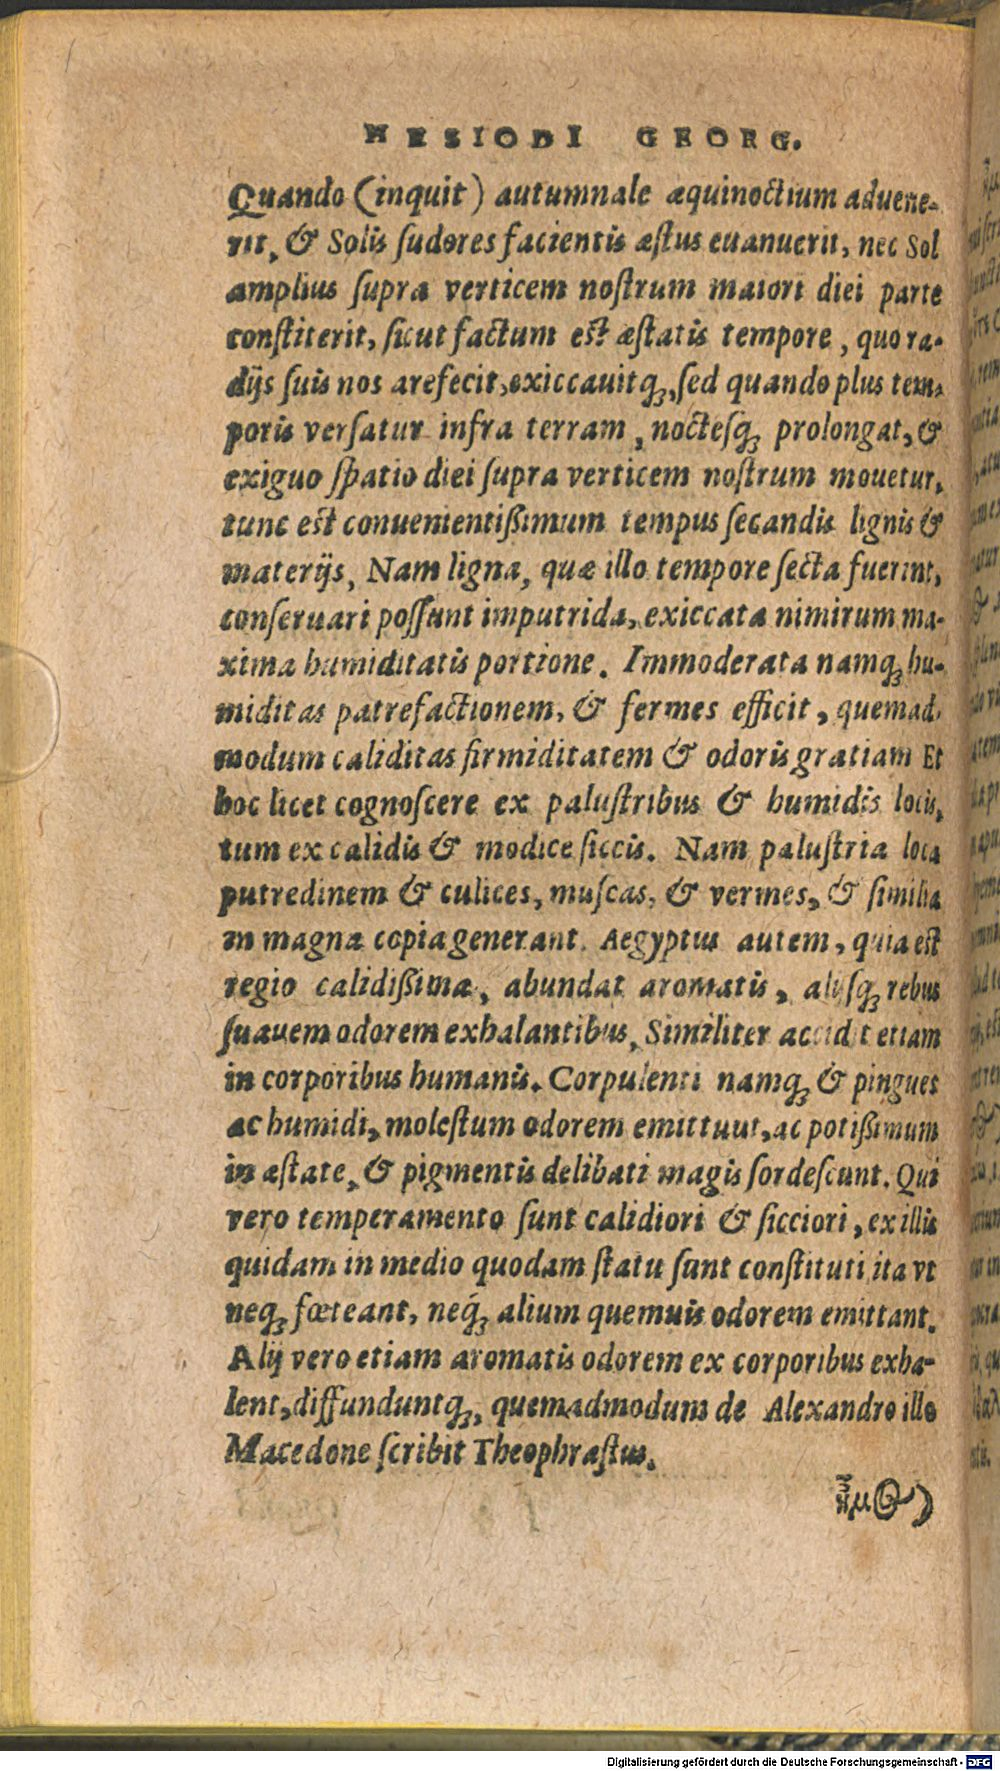 HESIODI GEORG.
Quando (inquit) autumnale æquinoctium aduene-
rit, & Solis ſudores facientis æſtus euanuerit, nec Sol
amplius ſupra verticem noſtrum maiori diei parte
conſtiterit, ſicut factum eſt æſtatis tempore, quo ra-
dijs ſuis nos arefecit, exiccauitqꝫ, ſed quando plus tem-
poris verſatur infra terram, nocteſqꝫ prolongat, &
exiguo ſpatio diei ſupra verticem noſtrum mouetur,
tunc eſt conuenientißimum tempus ſecandis lignis &
materijs, Nam ligna, quæ illo tempore ſecta fuerint,
conſeruari poſſunt imputrida, exiccata nimirum ma-
xima humiditatis portione. Immoderata namqꝫ hu-
miditas patrefactionem, & fermes efficit, quemad-
modum caliditas firmiditatem & odoris gratiam Et
hoc licet cognoſcere ex paluſtribus & humidis locis,
tum ex calidis & modice ſiccis. Nam paluſtria loca
putredinem & culices, muſcas, & vermes, & ſimilia
in magna copia generant. Aegyptus autem, quia eſt
regio calidißima, abundat aromatis, alijſqꝫ rebus
ſuauem odorem exhalantibus, Similiter accidit etiam
in corporibus humanis. Corpulenti namqꝫ & pingues
ac humidi, moleſtum odorem emittuut, ac potißimum
in æſtate, & pigmentis delibati magis ſordeſcunt. Qui
vero temperamento ſunt calidiori & ſicciori, ex illis
quidam in medio quodam ſtatu ſunt conſtituti ita vt
neqꝫ fœteant, neqꝫ́ alium quemuis odorem emittant.
Alij vero etiam aromatis odorem ex corporibus exha-
lent, diffunduntqꝫ, quemadmodum de Alexandro illo
Macedone ſcribit Theophraſtus.
Digitalisierung gefördert durch die Deutsche Forschungsgemeinschaft - DFG